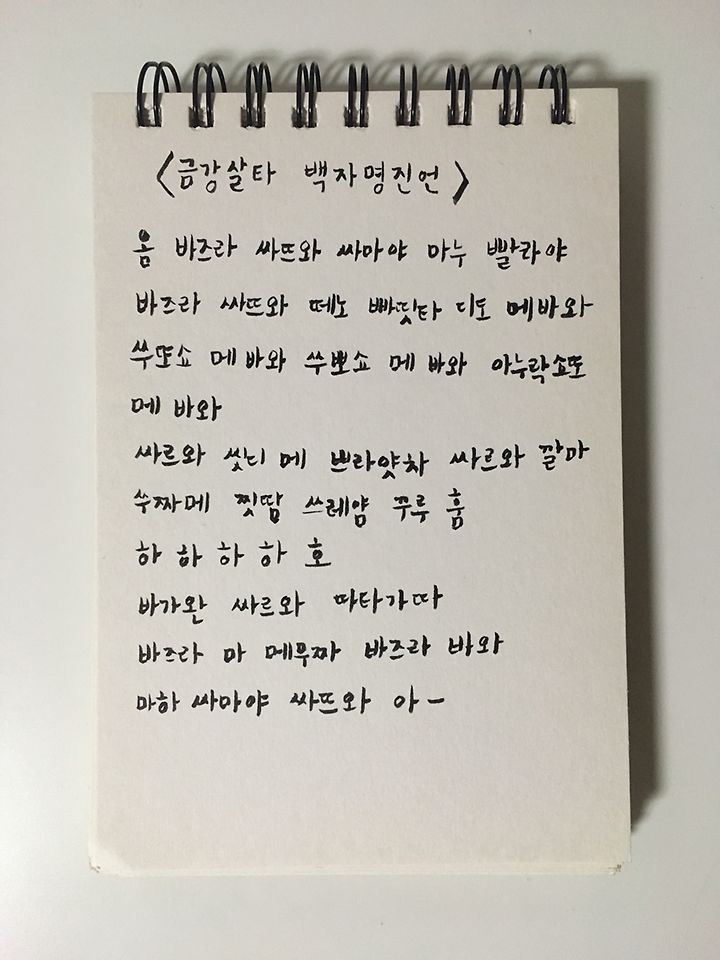 <금강살타 백자명진언>
옴 바즈라 싸뜨와 싸마야 마누 빨라야
바즈라 싸뜨와 떼노 빠띳타 디도 메바와
쑤또쇼 메 바와 쑤뽀쇼 메 바와 아누락쇼또
메 바와
싸르와 씻디 메 쁘라얏차 싸르와 깔마
쑤짜메 찟땀 쓰레얌 꾸루 훔
하 하 하 하 호
바가완 싸르와 따타가따
바즈라 마 메무짜 바즈라 바와
마하 싸마야 싸뜨와 아-